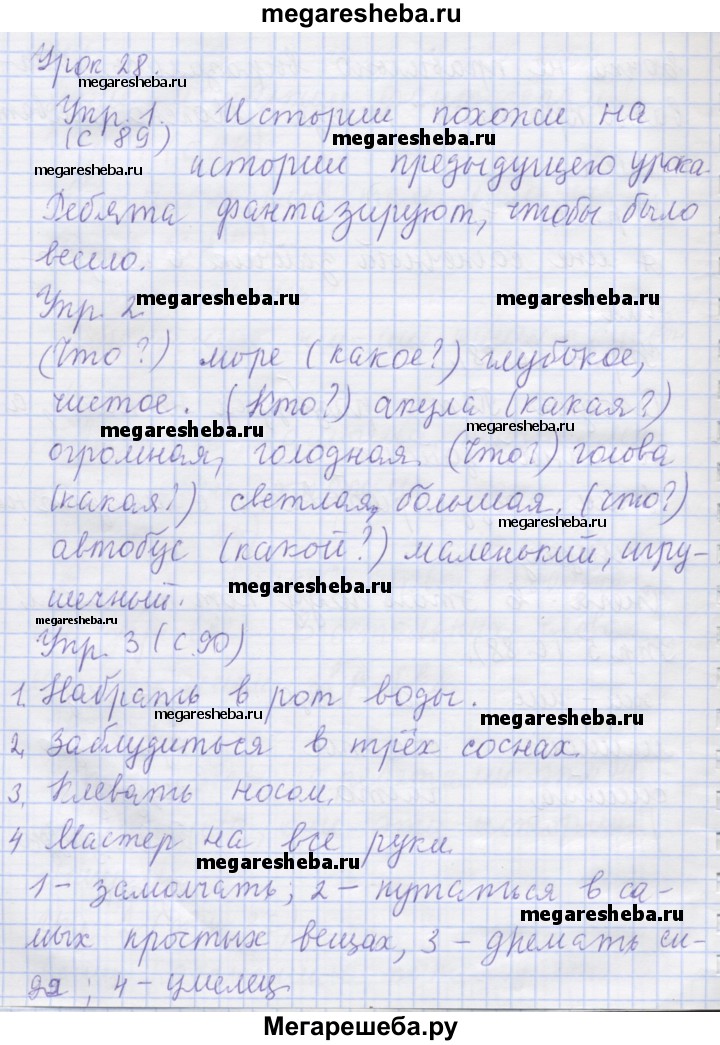 megaresheba.ru
Урок 28.
megaresheba.ru
Упр. 1. Истории похожи на
(с 89) megaresheba.ru
megaresheba.ru истории предыдущего урока.
Ребята фантазируют, чтобы было
весело.
Упр. 2. megaresheba.ru megaresheba.ru
(Что?) море (какое?) глубокое,
чистое. (Кто?) акула (какая?)
megaresheba.ru megaresheba.ru
огромная, голодная. (Что?) голова
(какая?) светлая, большая. (что?)
megaresheba.ru
автобус (какой?) маленький, игру-
шечный. megaresheba.ru
megaresheba.ru
Упр. 3 (с.90)
1. Набрать в рот воды.
megaresheba.ru megaresheba.ru
2. Заблудиться в трёх соснах.
3. Клевать носом.
4 Мастер на все руки.
megaresheba.ru
1 - замолчать; 2 - путаться в са-
megaresheba.ru
мых простых вещах, 3 - дремать си-
дя; 4 - умелец.
Мегарешеба.ру